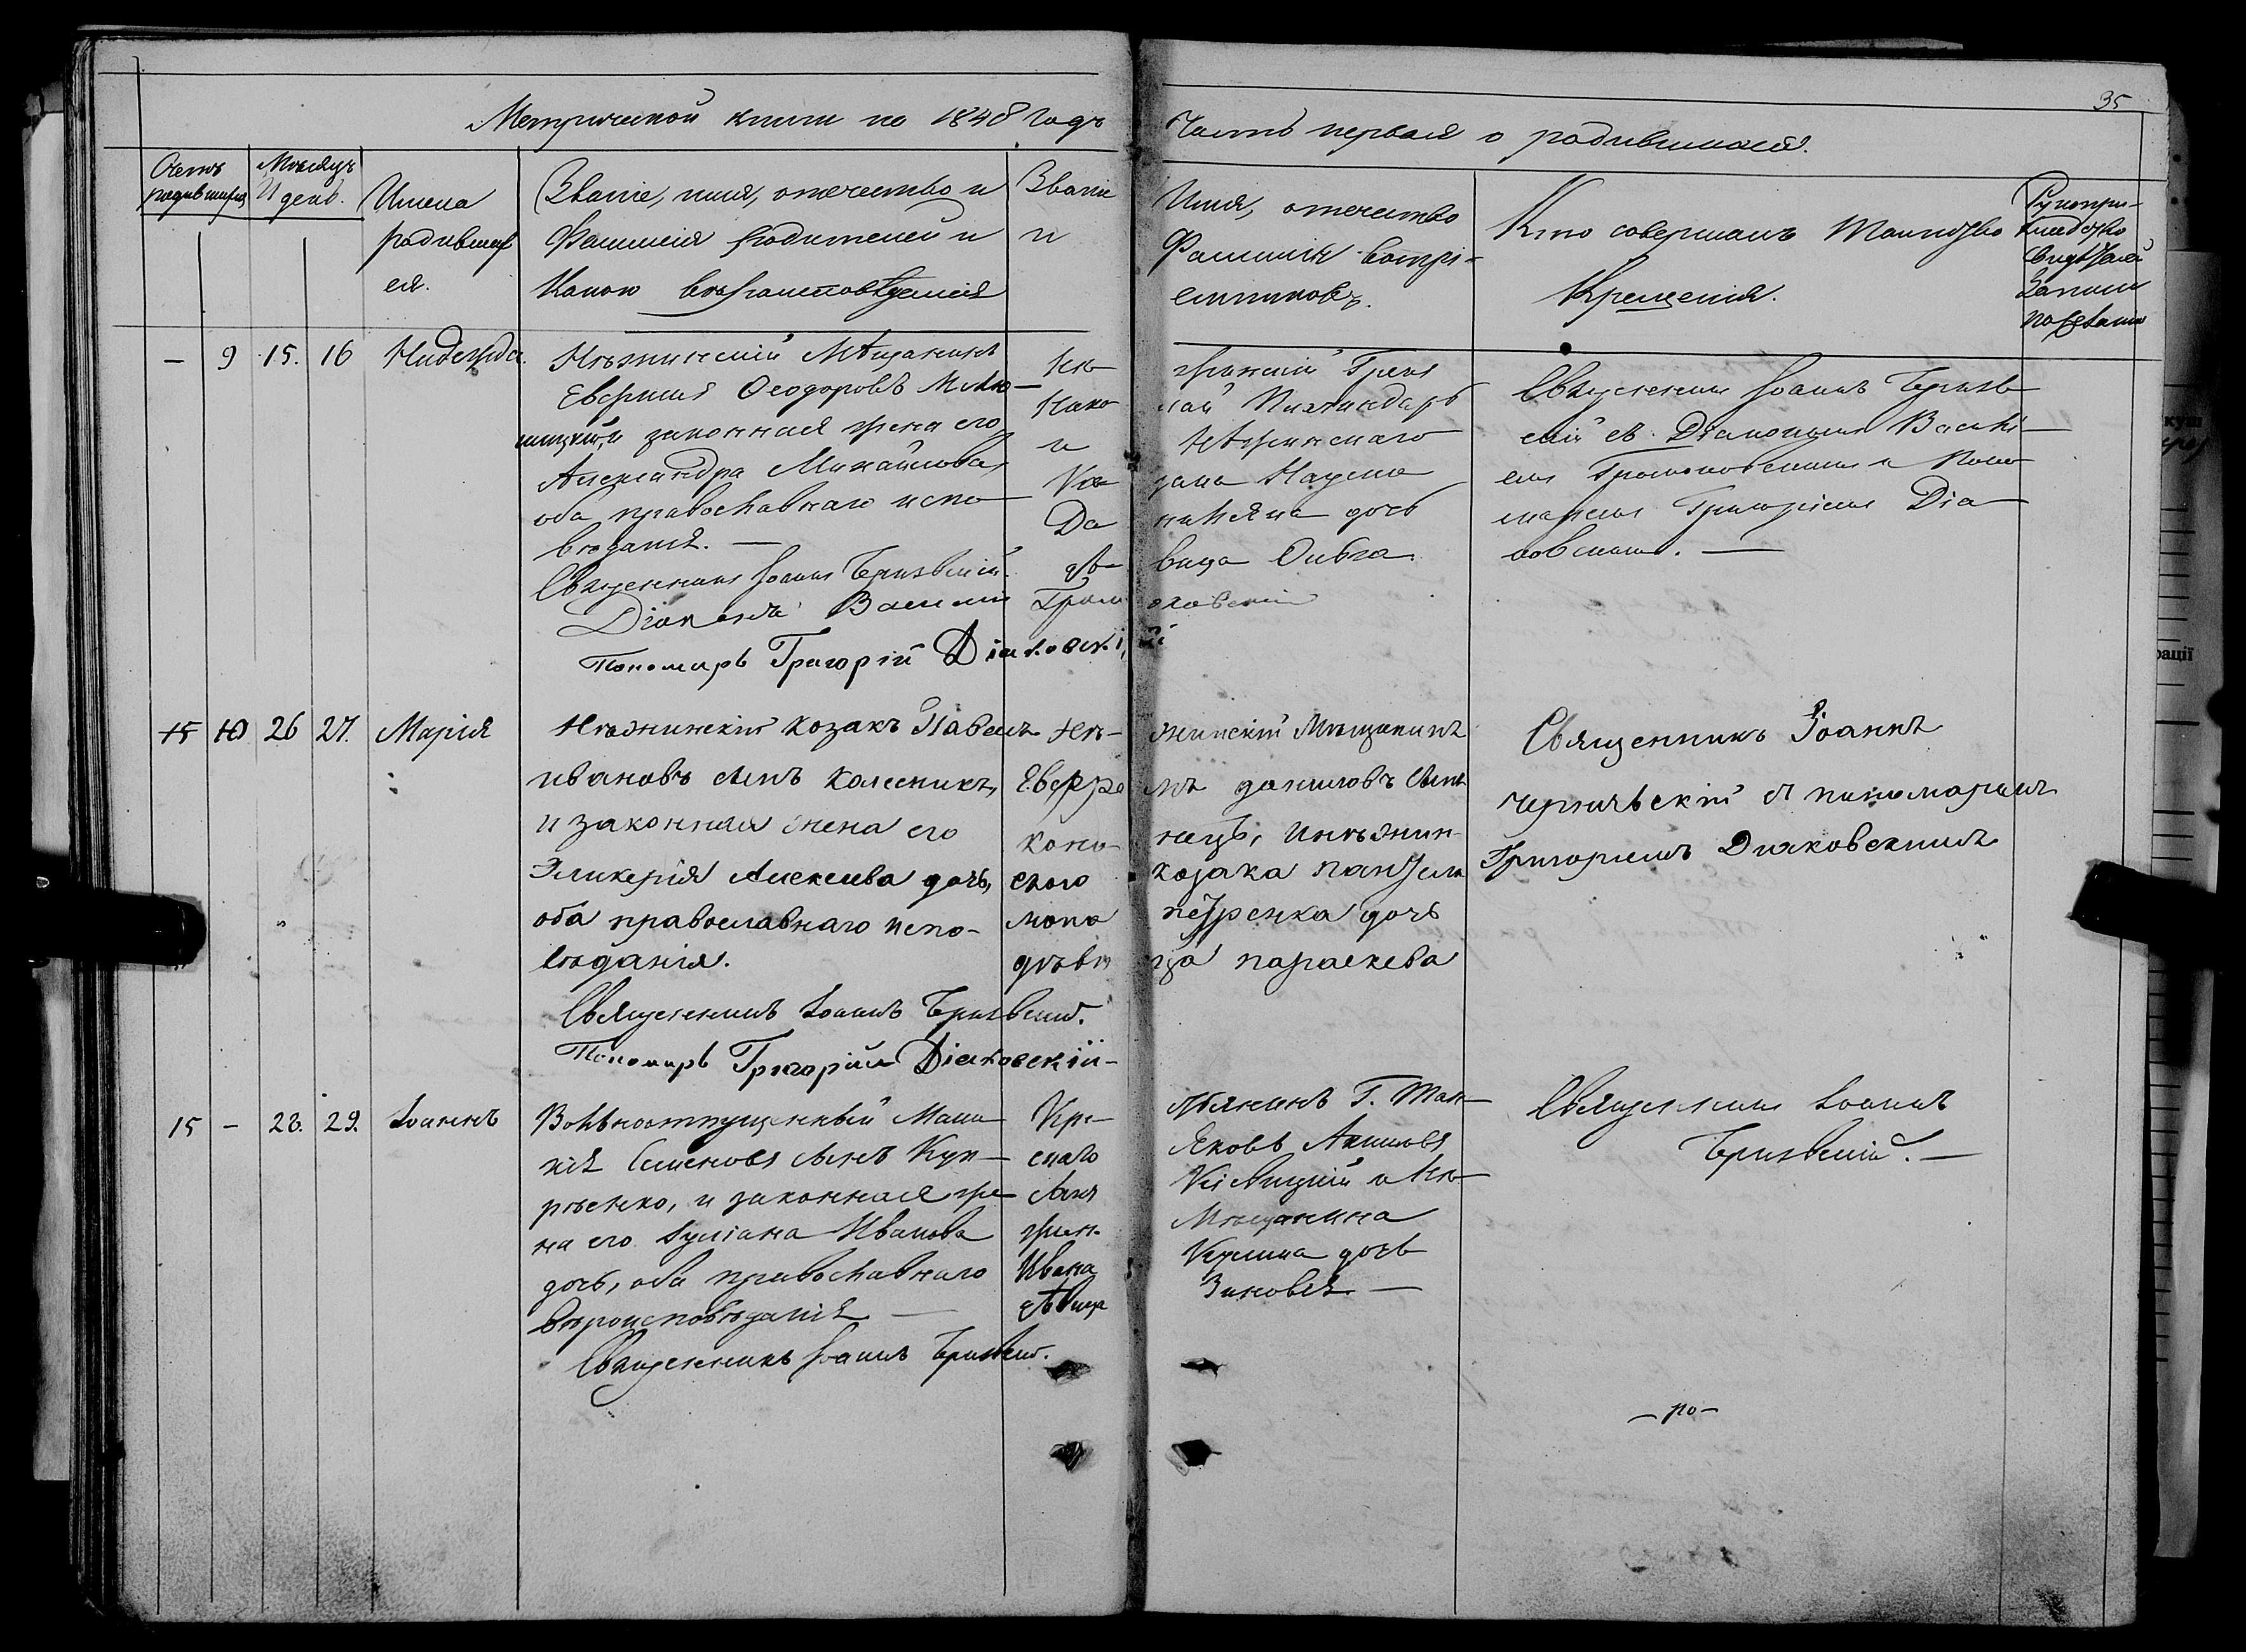 35
Метрической книги на 1848 Годъ
Часть первая о родившихся.
Счетъ родившихся
Мѣсяцъ И день.
Имена родившихся.
Званіе, имя, отечество и
Фамилія родителей и
Какого вѣроисповѣданія
Званіе
и
Имя, отечество
Фамилія воспрі-
емниковъ.
Кто совершалъ Таинство
Крещенія.
Рукопри-
кладство
свидѣтелей
Записи
по желанію
— 9 15. 16 Надежда.
Нѣжинскій Мѣщанинъ
Евфимій Феодоровъ
и законная жена его
Александра Михайлова,
оба православнаго испо-
вѣданія. —
Священникъ Іоаннъ
Діаконъ Василій Громоковскій
Пономарь Григорій Діаковскій
Нѣ- жинскій Грекъ
Нико- лай
и Нѣжинскаго
Наума
дочь
дѣ- вица Ольга
Священникъ Іоаннъ
съ Діакономъ Василі-
емъ Громоковскимъ и Поно-
маремъ Григоріемъ Діа-
ковскимъ. —
15 10 26 27. Марія
Нѣжинскій козакъ Павелъ
ивановъ сынъ колесникъ,
и законная жена его
Гликерія Алексеева дочь,
оба православнаго испо-
вѣданія.
Священникъ Іоаннъ
Пономарь Григорій Діаковскій
Нѣ- жинскій Мѣщанинъ
Ефре мъ даниловъ
и нѣжин-
ского козака
петренка дочь
дѣви ца параскева
Священникъ Іоаннъ
и пономаремъ
Григоріемъ Диаковскимъ
15 — 28. 29. Іоаннъ
Вольноотпущенный
Семеновъ сынъ Куп-
рѣенко, и законная же-
на его Іуліана Иванова
дочь, оба православнаго
вѣроисповѣданія —
Священникъ Іоаннъ
Кре- стьянинъ Г.
скаго Яковъ Акимовъ
сынъ и Нѣ-
жин. Мѣщанина
Ивана дочь
дѣвица Зиновія —
Священникъ Іоаннъ
— ро —